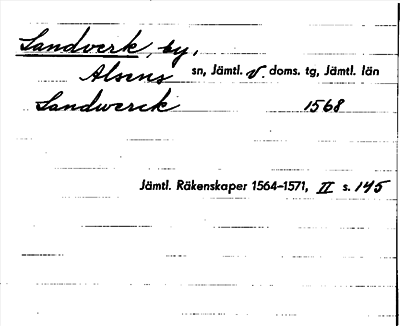 Sandverk, by,
Alsens sn, Jämtl. v. doms. tg, Jämtl. län
Sandwerck 1568
Jämtl. Räkenskaper 1564–1571, II s. 145